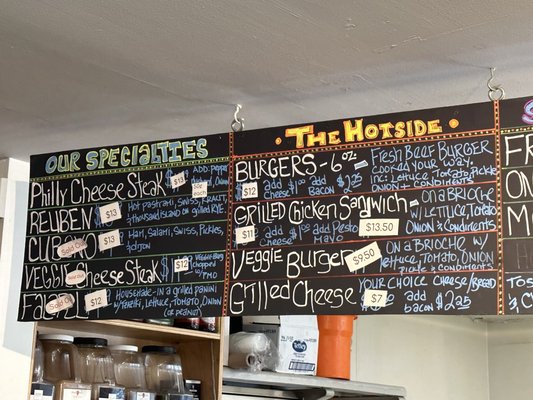 OUR SPECIALTIES
Philly Cheese Steak $13 ADD: Peppers
REUBEN $13 Hot Pastrami, Swiss, Kraut,
Thousand Island on grilled RYE.
CUBANO $13 Ham, Salami, Swiss, Pickles,
Sold Out
VEGGIE Cheese Steak $12 Veggie Burger
chopped
Sold Out
$12 HOUSEMADE - IN A grilled panini
w/ Tzatziki, Lettuce, Tomato, Onion
Sold Out
THE HOTSIDE
BURGERS - 6oz FRESH BEEF BURGER
COOKED YOUR WAY.
INC: Lettuce, Tomato, Pickle
ONION + CONDIMENTS
$12 add $1.00 CHEESE add BACON $2.25
GRILLED CHICKEN SANDWICH ON A BRIOCHE
W/ LETTUCE, TOMATO
ONION & CONDIMENTS
$11 add $1.00 CHEESE add PESTO MAYO $13.50
Veggie Burger $9.50 ON A BRIOCHE W/
LETTUCE, TOMATO, ONION,
PICKLE & CONDIMENTS
Grilled Cheese YOUR CHOICE CHEESE/BREAD
$7 add BACON $2.25